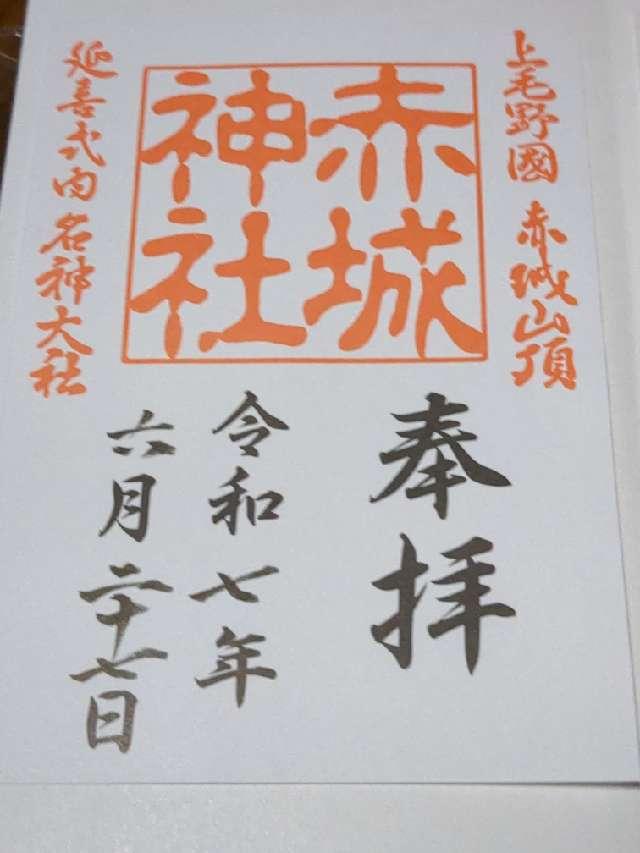 上毛野國 赤城山頂
赤城
神社
延喜式内名神大社
奉拝
令和七年
六月二十七日